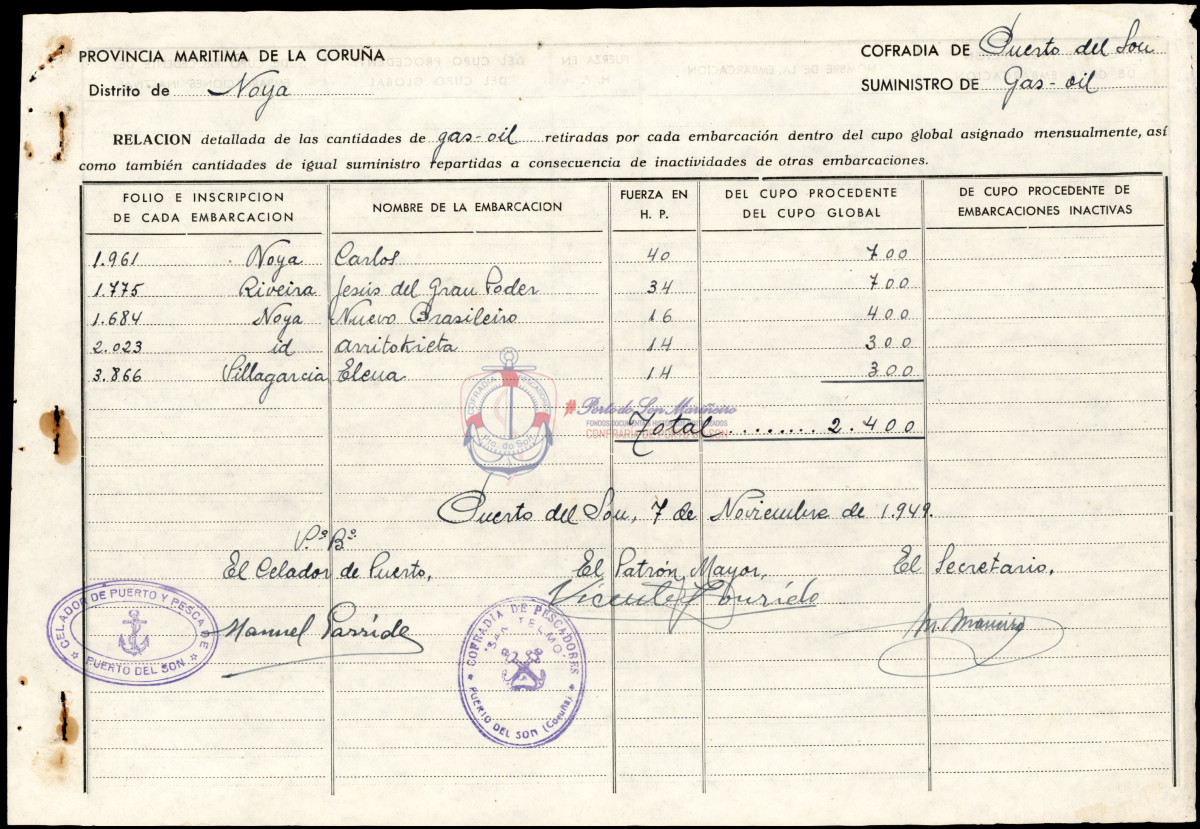 PROVINCIA MARITIMA DE LA CORUÑA
COFRADIA DE Puerto del Son
Distrito de Noya
SUMINISTRO DE Gas-oil
RELACION detallada de las cantidades de gas-oil retiradas por cada embarcación dentro del cupo global asignado mensualmente, así
como también cantidades de igual suministro repartidas a consecuencia de inactividades de otras embarcaciones.
FOLIO E INSCRIPCION DE CADA EMBARCACION
NOMBRE DE LA EMBARCACION
FUERZA EN H. P.
DEL CUPO PROCEDENTE DEL CUPO GLOBAL
DE CUPO PROCEDENTE DE EMBARCACIONES INACTIVAS
1.961 Noya Carlos 40 700
1.775 Riveira Jesús del Gran Poder 34 700
1.684 Noya Nuevo Brasileiro 16 400
2.023 id Arritokieta 14 300
3.866 Villagarcia Elena 14 300
COFRADÍA PESCADORES
Pto. do Son
#Porto do Son Mariñeiro
CONFRARÍA DE PORTO DO SON
Total ........ 2.400
Puerto del Son, 7 de Noviembre de 1.949.
V.º B.º
El Celador de Puerto,
El Patrón Mayor,
El Secretario,
CELADOR DE PUERTO Y PESCA DE
PUERTO DEL SON
Manuel Parride
Vicente Louride
COFRADIA DE PESCADORES
"SAN TELMO"
PUERTO DEL SON (Coruña)